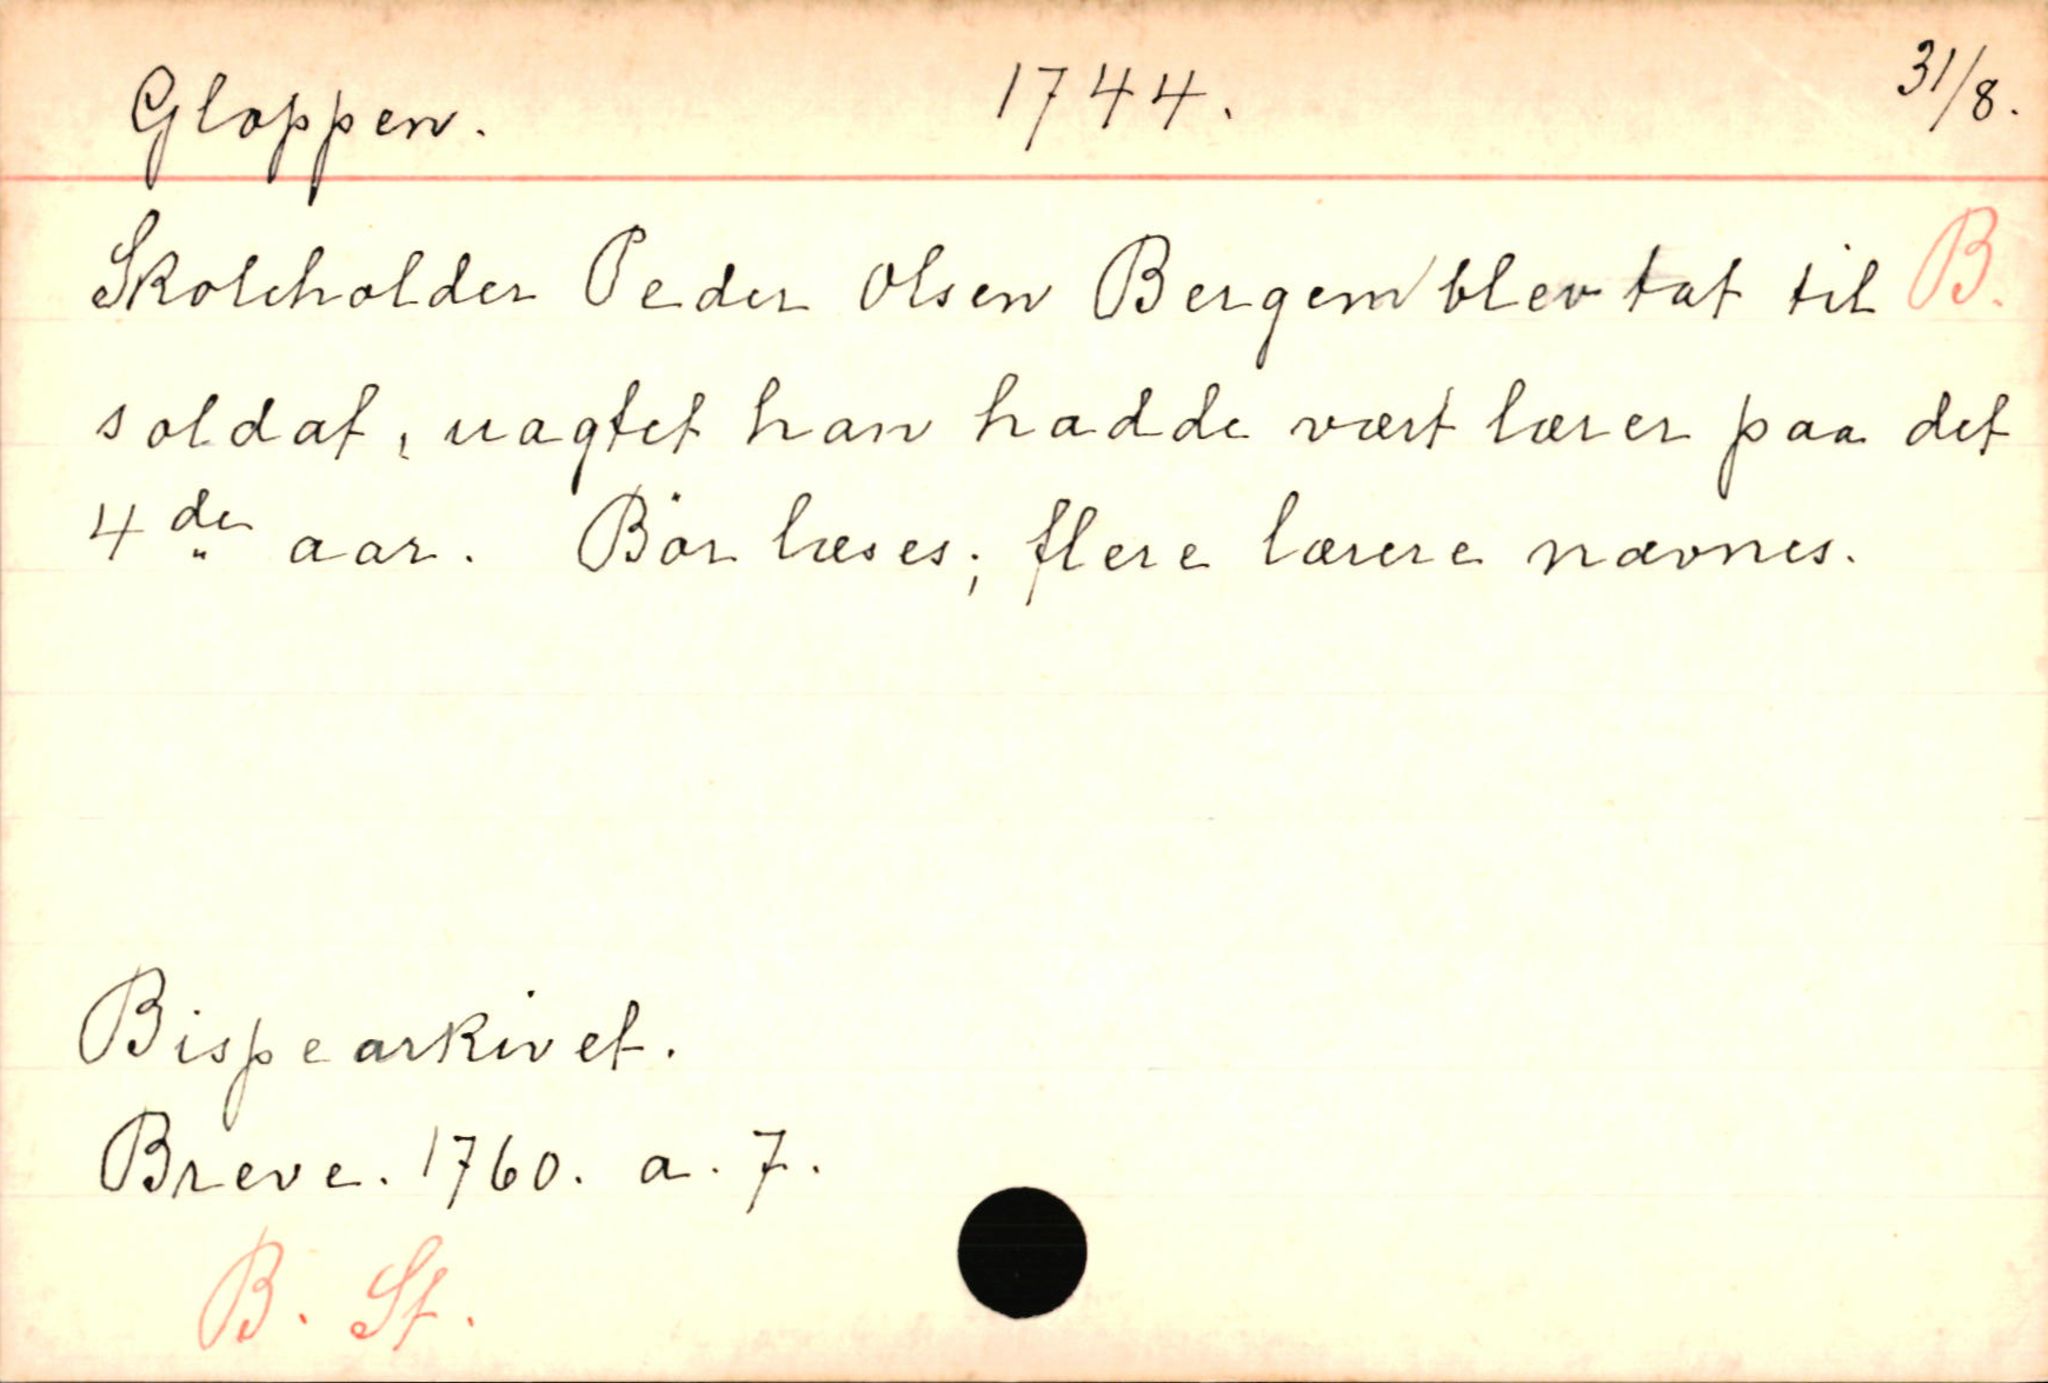 Gloppen. 1744. 31/8.
Skoleholder Peder Olsen Bergem blev tat til B.
soldat, uagtet han hadde vært lærer paa det
4de aar. Bör læses; flere lærere nævnes.
Bispearkivet.
Breve. 1760. a. 7.
B. St.